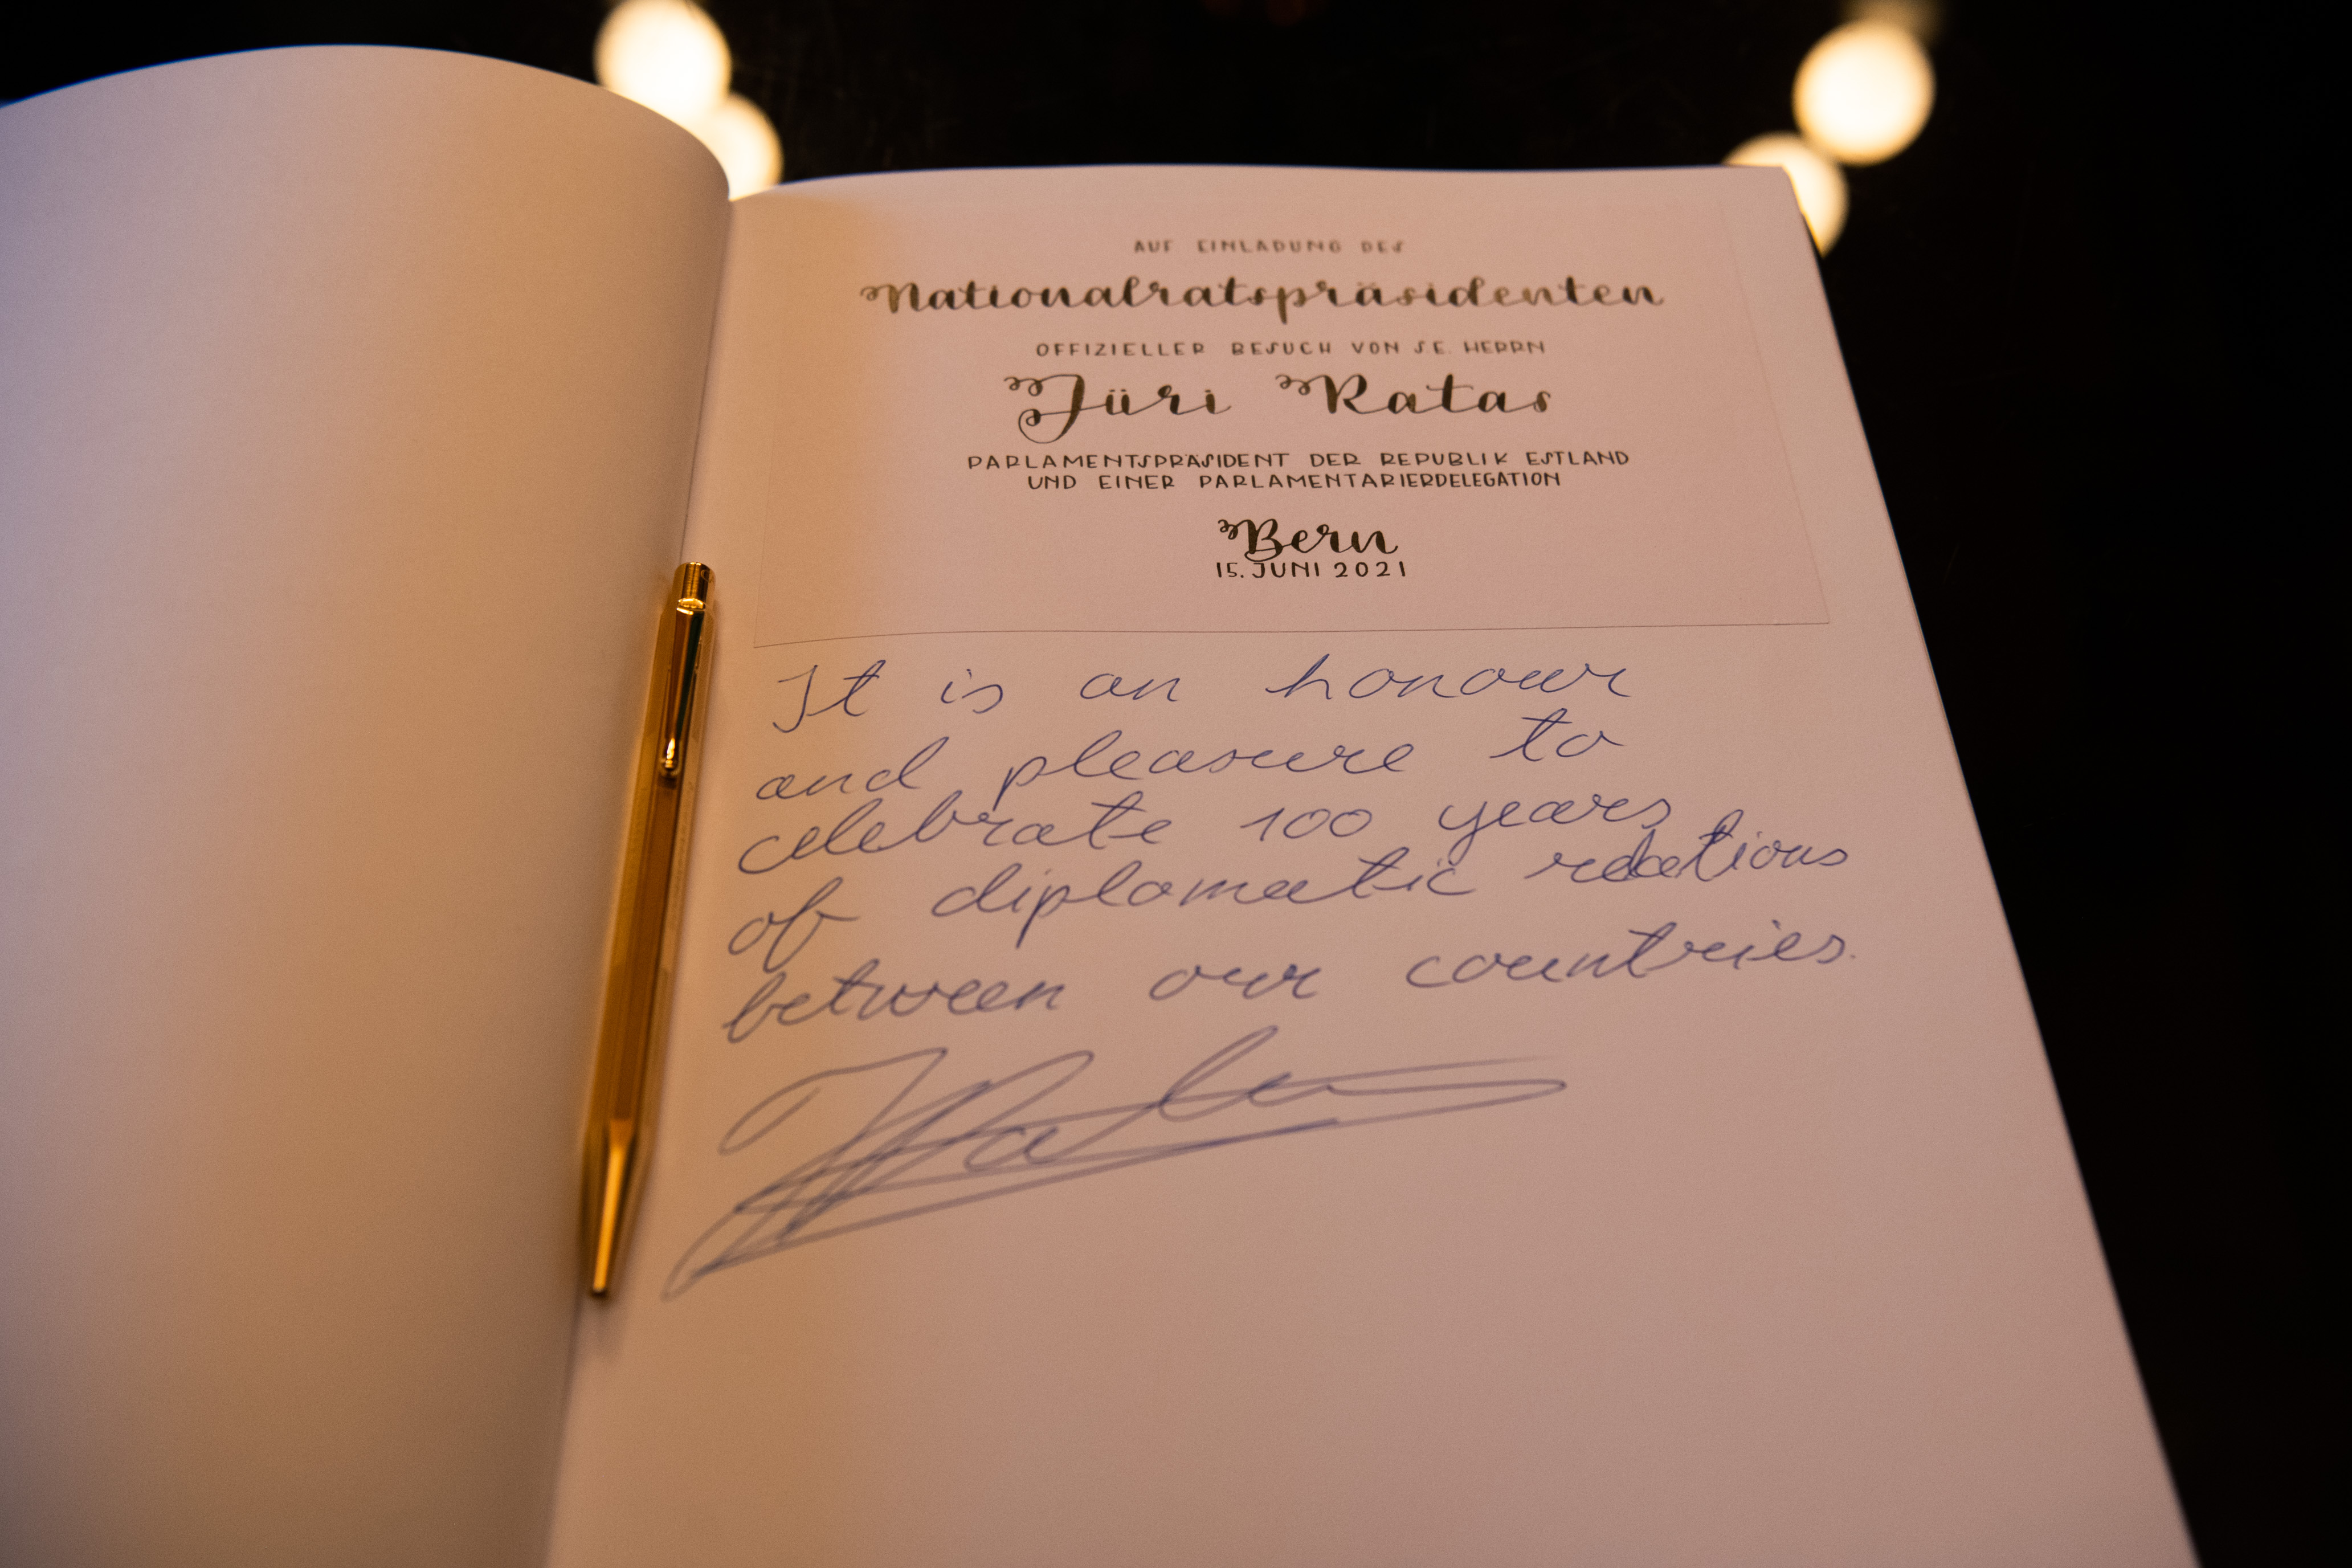 AUF EINLADUNG DES
Nationalratspräsidenten
OFFIZIELLER BESUCH VON S.E. HERRN
Jüri Ratas
PARLAMENTSPRÄSIDENT DER REPUBLIK ESTLAND
UND EINER PARLAMENTARIERDELEGATION
Bern
15. JUNI 2021
It is an honour
and pleasure to
celebrate 100 years
of diplomatic relations
between our countries.